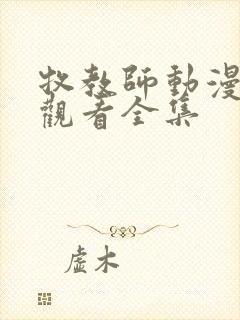 牧教師動漫
觀看全集
虛木